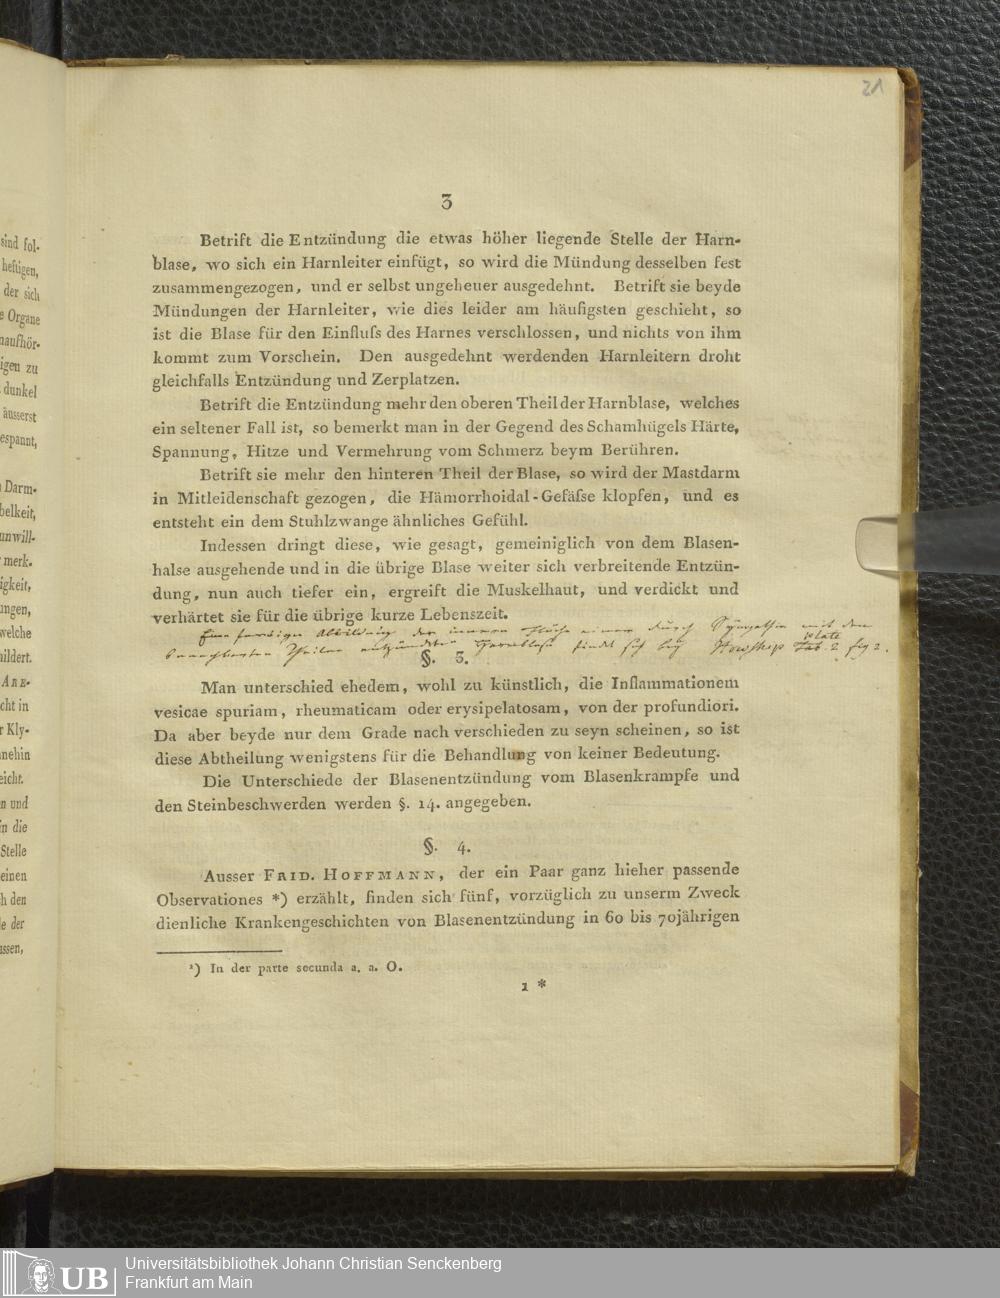 21
3
Betrift die Entzündung die etwas höher liegende Stelle der Harn-
blase, wo sich ein Harnleiter einfügt, so wird die Mündung desselben fest
zusammengezogen, und er selbst ungeheuer ausgedehnt. Betrift sie beyde
Mündungen der Harnleiter, wie dies leider am häufigsten geschieht, so
ist die Blase für den Einfluſs des Harnes verschlossen, und nichts von ihm
kommt zum Vorschein. Den ausgedehnt werdenden Harnleitern droht
gleichfalls Entzündung und Zerplatzen.
Betrift die Entzündung mehr den oberen Theil der Harnblase, welches
ein seltener Fall ist, so bemerkt man in der Gegend des Schamhügels Härte,
Spannung, Hitze und Vermehrung vom Schmerz beym Berühren.
Betrift sie mehr den hinteren Theil der Blase, so wird der Mastdarm
in Mitleidenschaft gezogen, die Hämorrhoidal-Gefäſse klopfen, und es
entsteht ein dem Stuhlzwange ähnliches Gefühl.
Indessen dringt diese, wie gesagt, gemeiniglich von dem Blasen-
halse ausgehende und in die übrige Blase weiter sich verbreitende Entzün-
dung, nun auch tiefer ein, ergreift die Muskelhaut, und verdickt und
verhärtet sie für die übrige kurze Lebenszeit.
Eine farbige Abbildung der innern Fläche einer durch Sympathie mit den
benachbarten Theilen entzündeten Harnblase findet sich bey Howship plate Tab. 2 fig 2.
§. 3.
Man unterschied ehedem, wohl zu künstlich, die Inflammationem
vesicae spuriam, rheumaticam oder erysipelatosam, von der profundiori.
Da aber beyde nur dem Grade nach verschieden zu seyn scheinen, so ist
diese Abtheilung wenigstens für die Behandlung von keiner Bedeutung.
Die Unterschiede der Blasenentzündung vom Blasenkrampfe und
den Steinbeschwerden werden §. 14. angegeben.
§. 4.
Ausser FRID. HOFFMANN, der ein Paar ganz hieher passende
Observationes *) erzählt, finden sich fünf, vorzüglich zu unserm Zweck
dienliche Krankengeschichten von Blasenentzündung in 60 bis 70jährigen
¹) In der parte secunda a. a. O.
1 *
sind fol-
heftigen,
der sich
e Organe
naufhör-
igen zu
dunkel
äusserst
espannt,
Darm-
belkeit,
unwill-
merk-
igkeit,
ungen,
welche
hildert.
ARE-
cht in
r Kly-
nnehin
eicht.
n und
in die
Stelle
einen
h den
le der
ussen,
UB
Universitätsbibliothek Johann Christian Senckenberg
Frankfurt am Main